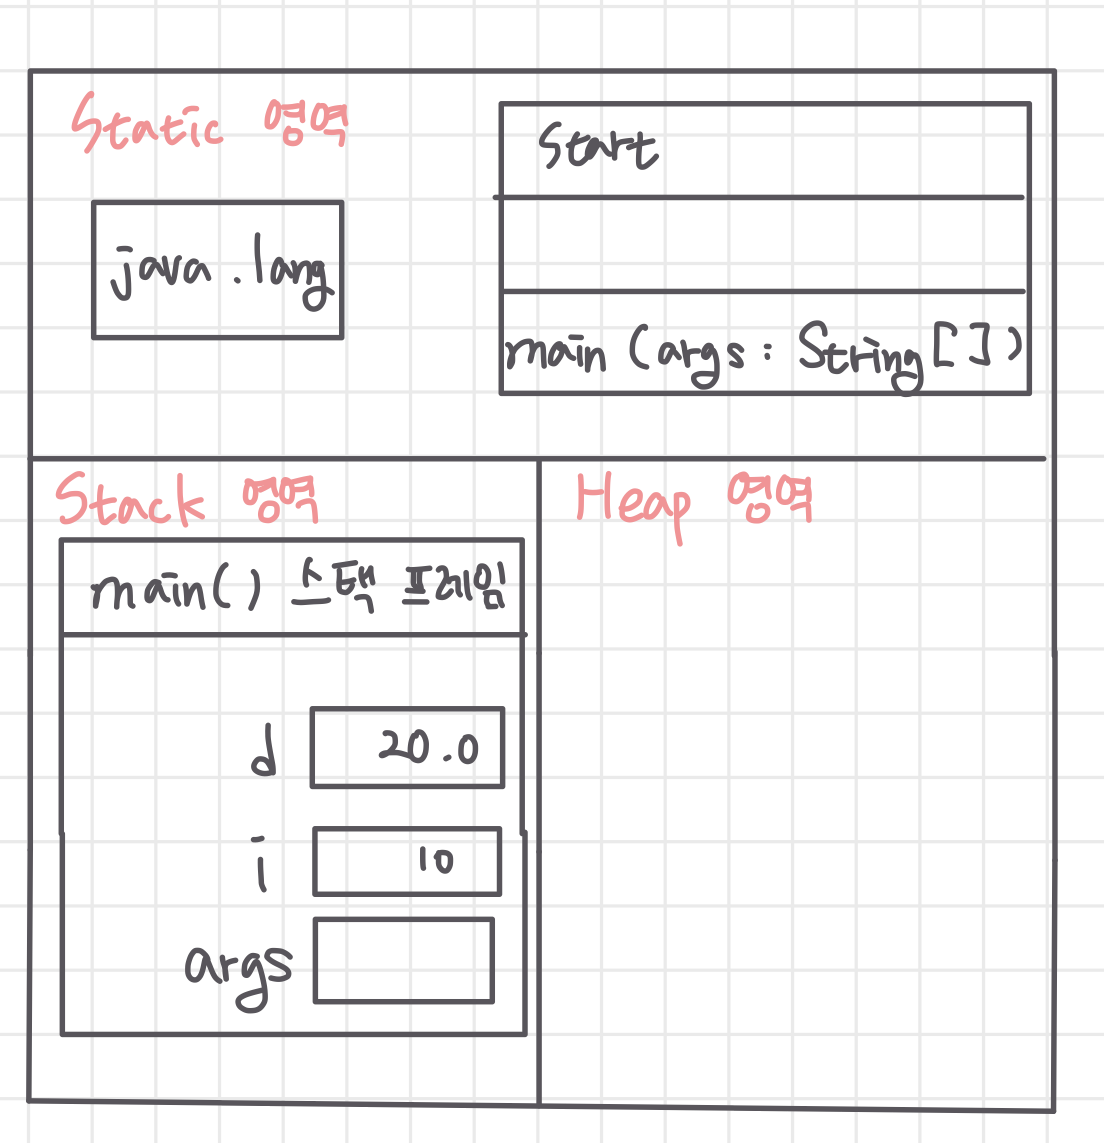 Static 영역
java.lang
Start
main (args : String[])
Stack 영역
main() 스택 프레임
d 20.0
i 10
args
Heap 영역